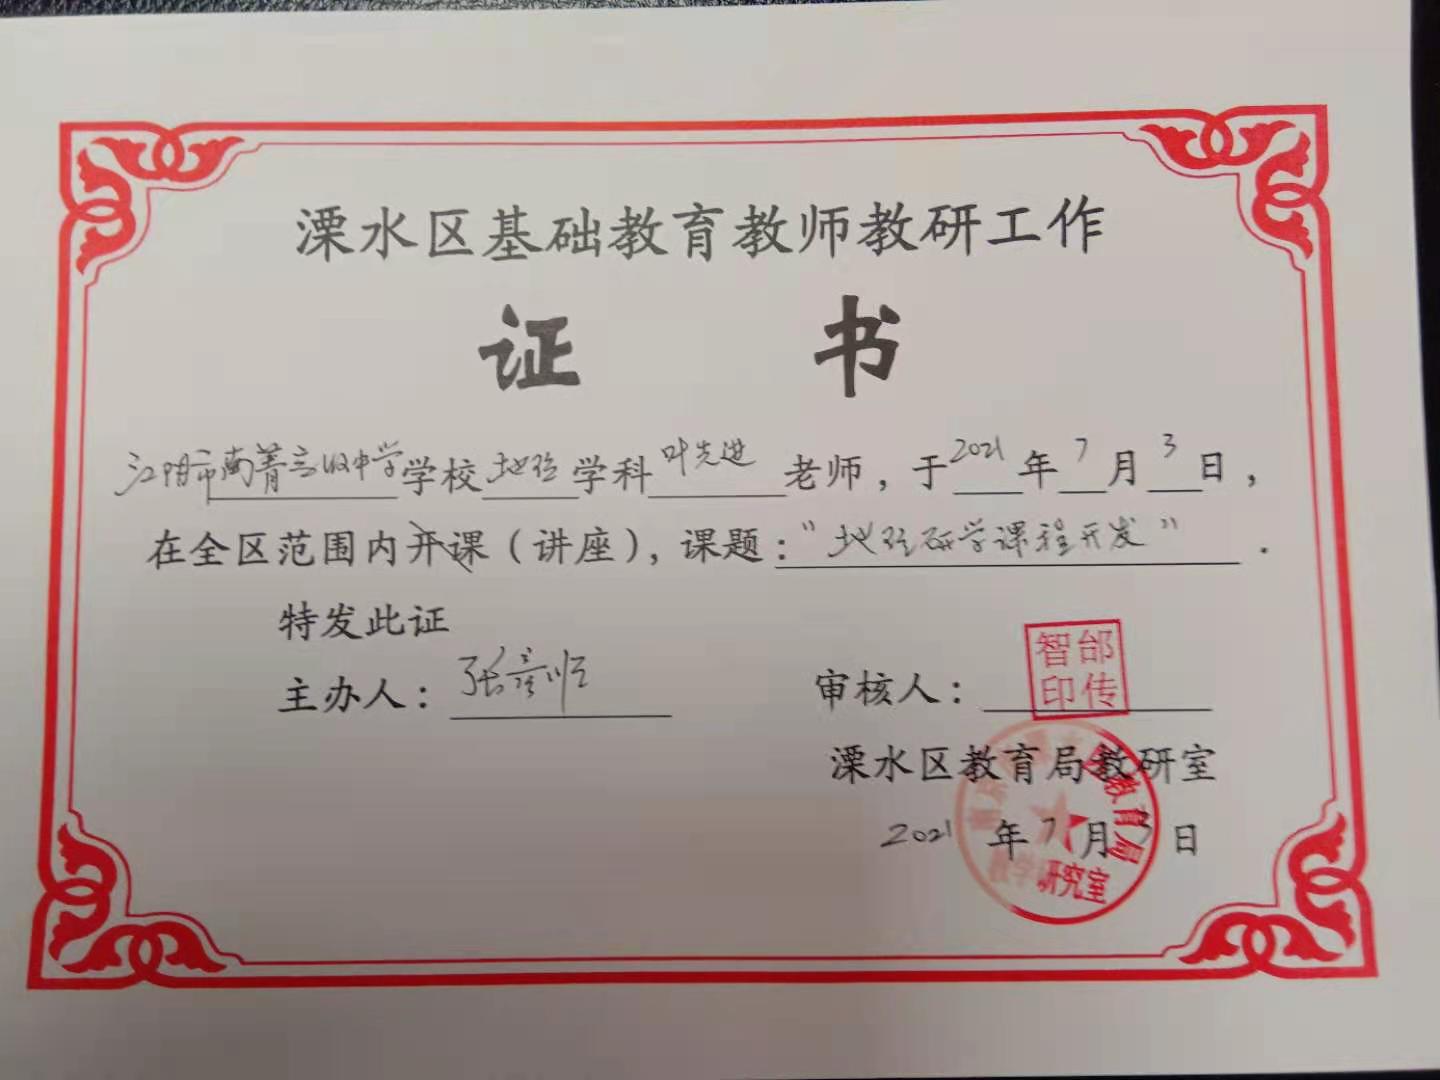 溧水区基础教育教师教研工作
证 书
江阴市南菁高级中学学校地理学科叶先进老师，于2021年7月3日，
在全区范围内开课（讲座），课题：“地理研学课程开发”.
特发此证
主办人：张 审核人：智邰印传
溧水区教育局教研室
2021年7月 日
教育局
教学研究室